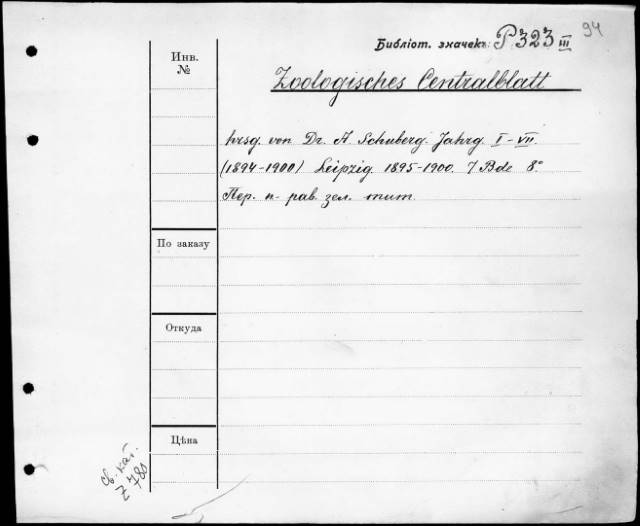 94
Библіот. значекъ: P 323 III
Инв. №
Zoologisches Centralblatt
hrsg. von Dr. A. Schuberg. Jahrg. I-VII.
(1894-1900) Leipzig. 1895-1900. 7 Bde 8°
Пер. п. рав. зел. тит.
По заказу
Откуда
Цѣна
Св. кат.
Z 780